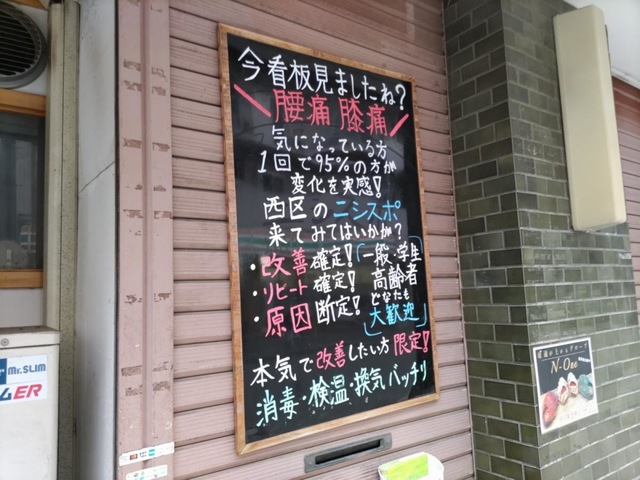 今看板見ましたね?
＼腰痛 膝痛／
気になっている方
1回で95%の方が
変化を実感!
西区のニシスポ
来てみてはいかが?
・改善確定!
・リピート確定!
・原因断定!
「一般・学生
高齢者
どなたも
大歓迎」
本気で改善したい方限定!
消毒・検温・換気バッチリ
Mr.SLIM
ER
N-One